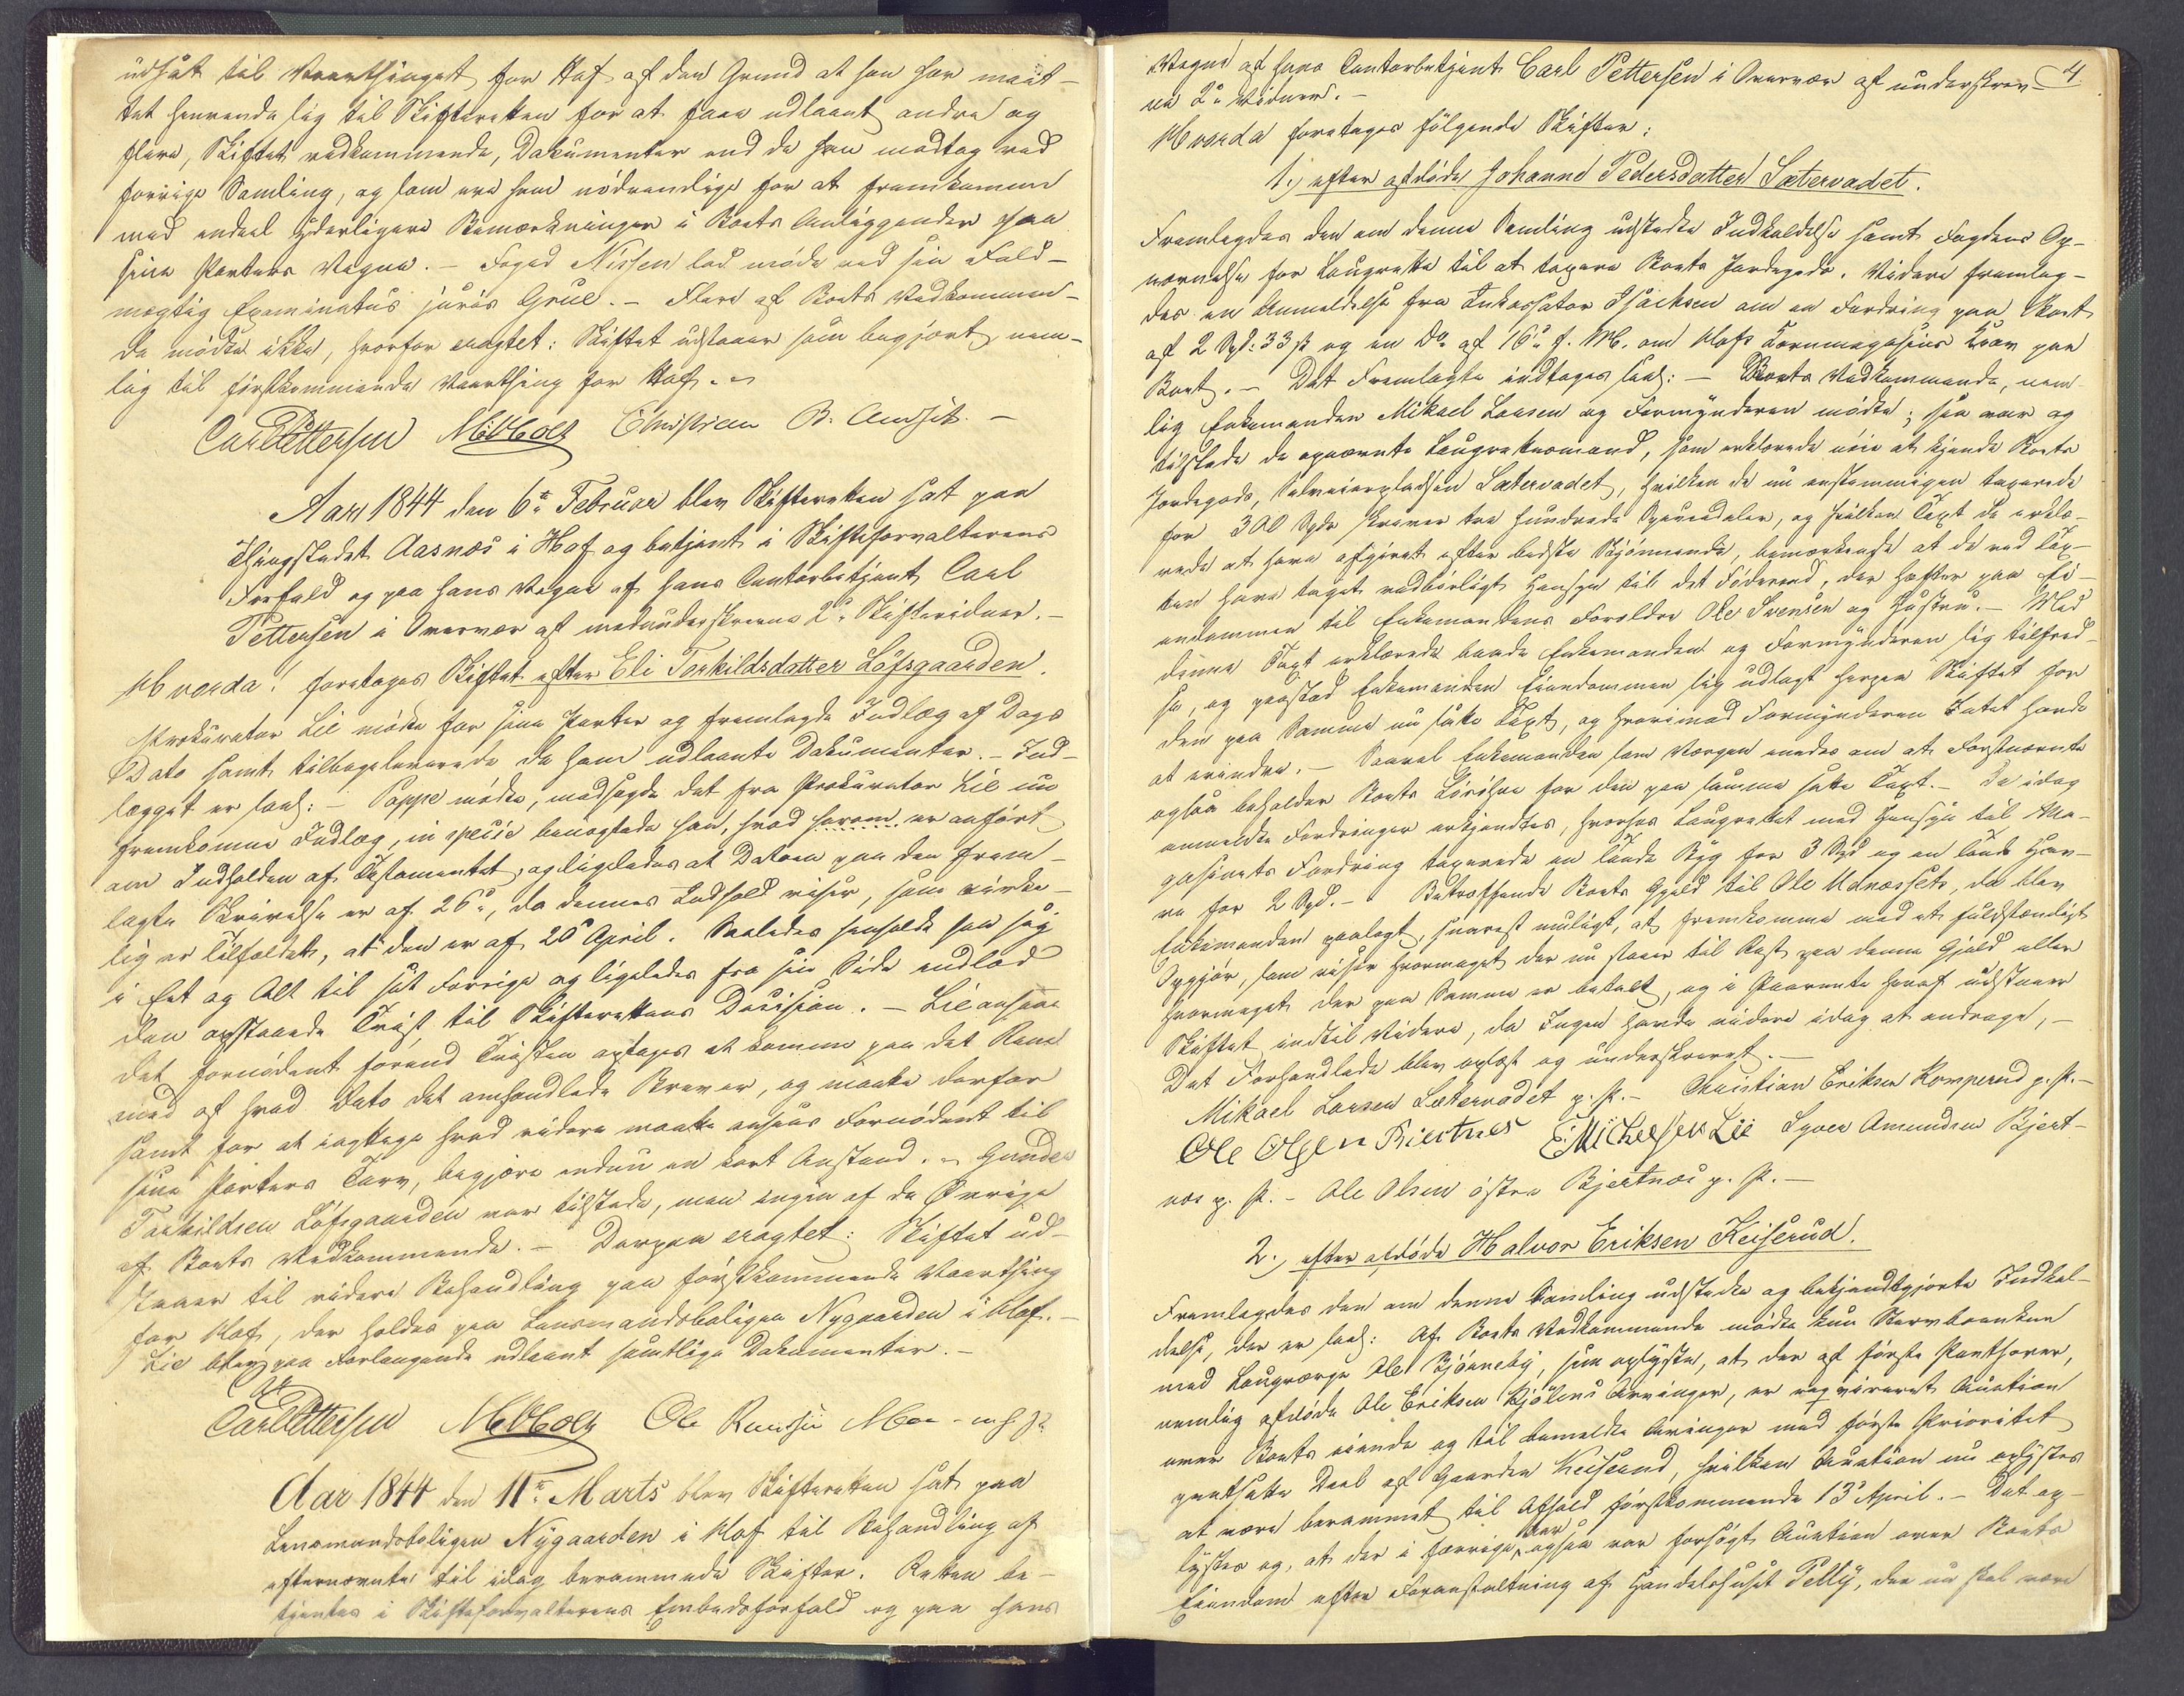 udsat til Vaarthinget for Hof af den Grund at han har maat-
tet henvende sig til Skifteretten for at faae udlaant andre og
flere, Skiftet vedkommende, Dokumenter end de han modtog ved
forrige Samling, og som ere ham nødvendige for at fremkomme
med endeel yderligere Bemærkninger i Boets Anliggender paa
sine Parters Vegne. - Foged Nissen lod møde ved sin Fuld-
mægtig Examinatus juris Grüe. - Flere af Boets Vedkommen-
de mødte ikke, hvorfor eragtet: Skiftet udstaaer som begjært, nem-
lig til førstkommende Vaarthing for Hof. -
Carl Pettersen Christian B.
Aar 1844 den 6te Februar blev Skifteretten sat paa
Thingstedet Aasnæs i Hof og betjent i Skifteforvalterens
Forfald og paa hans Vegne af hans Contorbetjent Carl
Pettersen i Overvær af medunderskrevne 2de Skiftevidner. -
Hvorda! foretages Skiftet efter Eli Torkildsdatter Löfsgaarden.
Prokurator Lie mødte for sine Parter og fremlagde Indlæg af Dags
Dato samt tilbageleverede de ham udlaante Dokumenter. - Ind-
lægget er saal: - Poppe mødte, modsagde det fra Prokurator Lie nu
fremkomne Indlæg, in specie benegtede han, hvad herom er anført
om Indholden af Testamentet, og ligeledes at Datoen paa den frem-
lagte Skrivelse er af 26de, da dennes Indhold viser, som virke-
lig er Tilfældet, at den er af 20de April. Saaledes henholdt han sig
i Eet og Alt til sit Forrige og ligeledes fra sin Side indlod
den opstaaede Tvist til Skifterettens Decision. - Lie ansaae
det fornødent førend Tvisten optages at komme paa det Rene
med af hvad Dato det omhandlede Brev er, og maatte derfor
samt for at iagttage hvad videre maatte ansees Fornødent til
sine Parters Tarv, begjære endnu en kort Anstand. - Gunder
Torkildsen Löfsgaarden var tilstede, men ingen af de Øvrige
af Boets Vedkommende. - Derpaa eragtet: Skiftet ud-
staaer til videre Behandling paa førstkommende Vaarthing
for Hof, der holdes paa Lensmandsboligen Nygaarden i Hof. -
Lie blev paa Forlangende udlaant samtlige Dokumenter. -
Carl Pettersen Ole
Aar 1844 den 11te Marts blev Skifteretten sat paa
Lensmandsboligen Nygaarden i Hof til Behandling af
efternævnte til idag berammede Skifter. Retten be-
tjentes i Skifteforvalterens Embedsforfald og paa hans
4.
Vegne af hans Contorbetjent Carl Pettersen i Overvær af underskrev-
ne 2de Vidner. -
Hvorda foretages følgende Skifter:
1.) efter afdøde Johanne Pedersdatter Sætervadet.
Fremlagdes den om denne Samling udstedte Indkaldelse samt Fogdens Op-
nævnelse for Laugrette til at taxere Boets Jordegods. Videre fremlag-
des en Anmeldelse fra Inkassator Isachsen om en Fordring paa Boet
af 2 Spd: 33 ß og en Do af 16de f. M. om Hofs Kornmagasins Krav paa
Boet. - Det Fremlagte indtages saal: - Boets Vedkommende, nem-
lig Enkemanden Mikael Larsen og Formynderen mødte; her var og
tilstede de opnævnte Laugrettesmænd, som erklærede nøie at kjende Boets
Jordegods, Selveierpladsen Sætervadet, hvilken de nu eenstemmigen taxerede
for 300 Spdr skriver tre hundrede Speciedaler, og hvilken Taxt de erklæ-
rede at have afgivet efter bedste Skjønnende, bemærkende at de ved Tax-
ten have taget vedbørligt Hensyn til det Føderaad, der hæfter paa Ei-
endommen til Enkemandens Forældre Ole Svensen og Hustru. - Med
denne Taxt erklærede baade Enkemanden og Formynderen sig tilfred-
se, og paastod Enkemanden Eiendommen sig udlagt herpaa Skiftet for
den paa Samme nu satte Taxt, og hvorimod Formynderen Intet havde
at erindre. - Saavel Enkemanden som Værgen enedes om at Førstnævnte
ogsaa beholder Boets Løsøre for den paa samme satte Taxt. - De idag
anmeldte Fordringer erkjendtes, hvorhos Laugrettet med Hensyn til Ma-
gasinets Fordring taxerede en Tønde Byg for 3 Spd og en Tønde Hav-
re for 2 Spd. - Betræffende Boets Gjæld til Ole Udnæssets, da blev
Enkemanden paalagt, snarest muligt, at fremkomme med et fuldstændigt
Opgjør, som viser hvormeget der nu staaer til Rest paa denne Gjæld eller
hvormeget der paa Samme er betalt, og i Paavente heraf udstaaer
Skiftet indtil Videre, da Ingen havde videre idag at andrage, -
Det Forhandlede blev oplæst og underskrevet. -
Mikael Larsen Sætervadet p. P. - Christian Eriksen Komperud p. P. -
Ole Olsen E: Michelsen Lie Syver Amundsen Bjert-
næs p. P. - Ole Olsen østre Bjertnæs p. P. -
2.) efter afdøde Halvor Eriksen Keiserud.
Fremlagdes den om denne Samling udstedte og bekjendtgjorte Indkal-
delse, der er saal: Af Boets Vedkommende mødte kun Stervboenken
med Laugværge Ole Bjørneby, som oplyste, at der af første Panthaver,
nemlig afdøde Ole Eriksen Kjölens Arvinger, er reqvireret Auction
over Boets eiende og til bemeldte Arvinger med første Prioritet
pantsatte Deel af Gaarden Keiserud, hvilken Auction nu oplystes
at være berammet til Afhold førstkommende 13de April. - Det op-
lystes og, at der i forrige Aar ogsaa var forsøgt Auction over Boets
Eiendom efter Foranstaltning af Handelshuset Pelly, der nu skal være